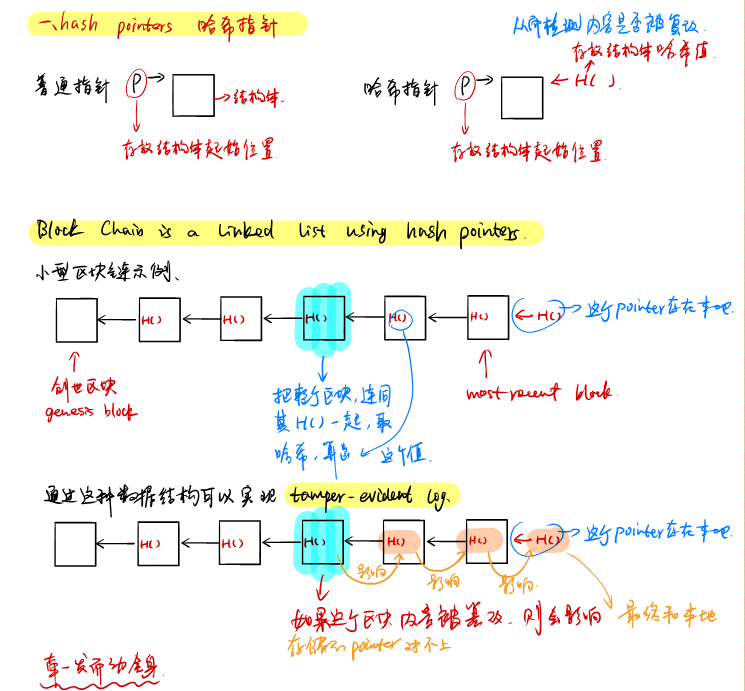 一、hash pointers 哈希指针
从而检测内容是否被篡改.
存放结构体哈希值.
普通指针 P 结构体.
哈希指针 P H( ).
存放结构体起始位置
存放结构体起始位置
Block Chain is a linked list using hash pointers.
小型区块链示例、
H() H() H() H() H() H() 这个pointer存在本地.
创世区块
genesis block
most recent block.
把整个区块,连同
其H()一起,取
哈希,算出 这个值.
通过这种数据结构可以实现 tamper-evident log.
H() H() H() H() H() H() 这个pointer存在本地.
影响 影响 影响.
如果这个区块内容被篡改、则会影响 最终和本地
存储的pointer对不上
牵一发而动全身.